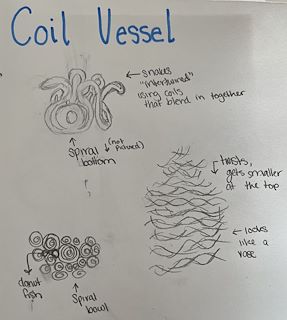 Coil Vessel
snakes
"intertwined"
using coils
that blend in together
Spiral (not pictured)
bottom
twists,
gets smaller
at the top
looks
like a
vase
donut
fish
Spiral
bowl